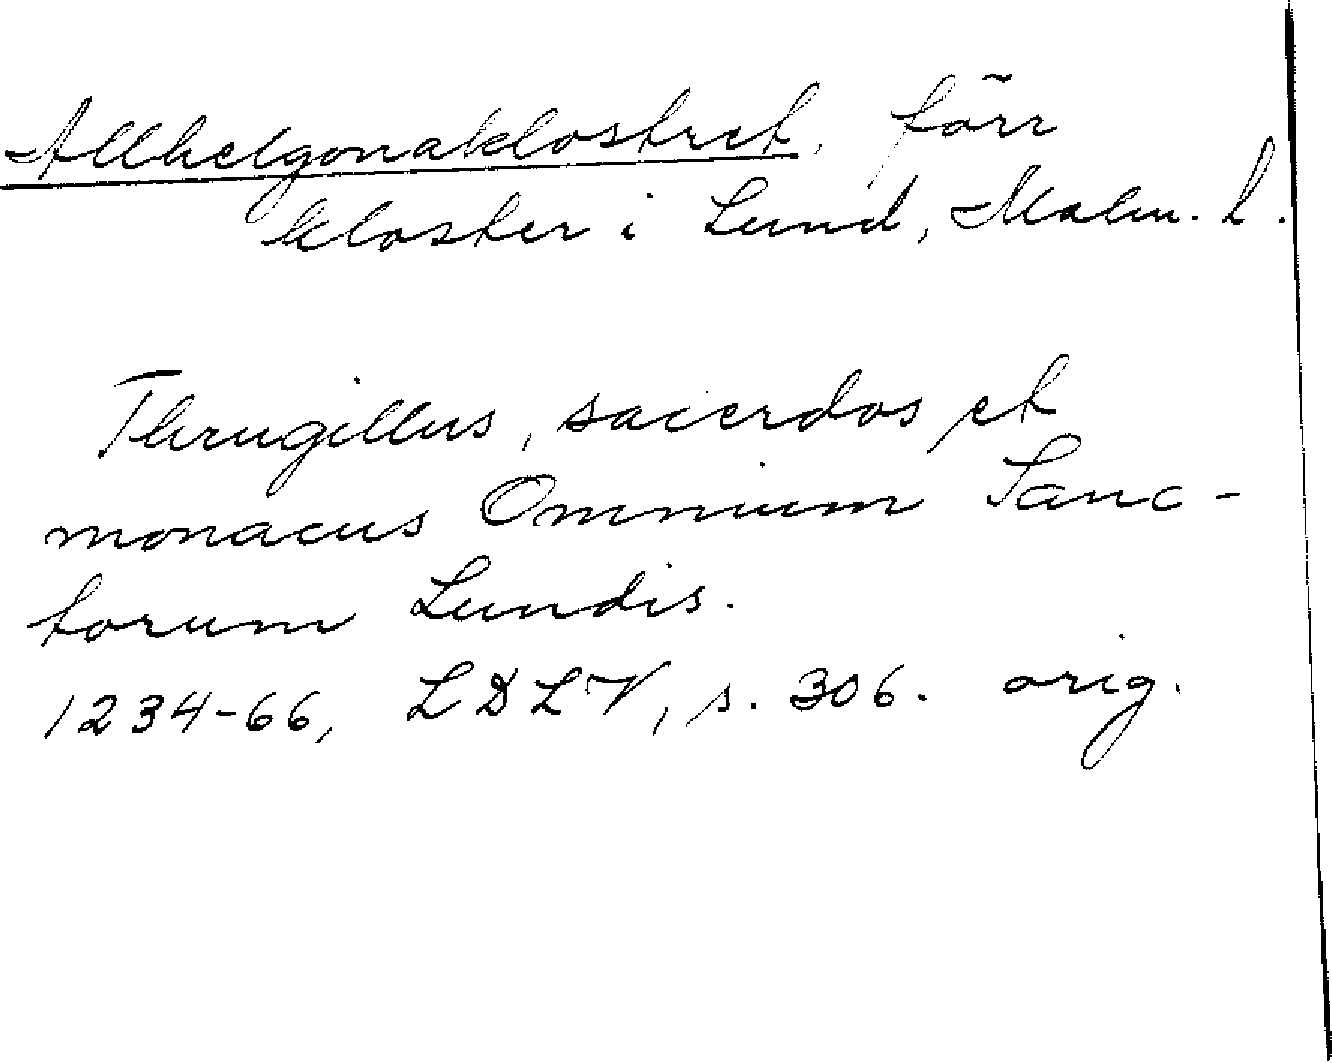 Allhelgonaklostret, förr
kloster i Lund, Malm. l.
Thrugillus, sacerdos et
monacus Omnium Sanc-
torum Lundis.
1234-66, LDLV, s. 306. orig.